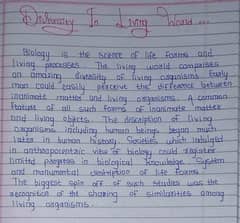 Diversity In Living World...
Biology is the science of life forms and
living processes. The living world comprises
an amazing diversity of living organisms. Early
man could easily perceive the difference between
inanimate matter and living organisms. A common
feature of all such forms of inanimate matter
and living objects. The description of living
organisms including human beings began much
later in human history. Societies which indulged
in anthropocentric view of biology could register
limited progress in biological knowledge. System
and monumental description of life forms.
The biggest spin off of such studies was the
recognition of the sharing of similarities among
living organisms.